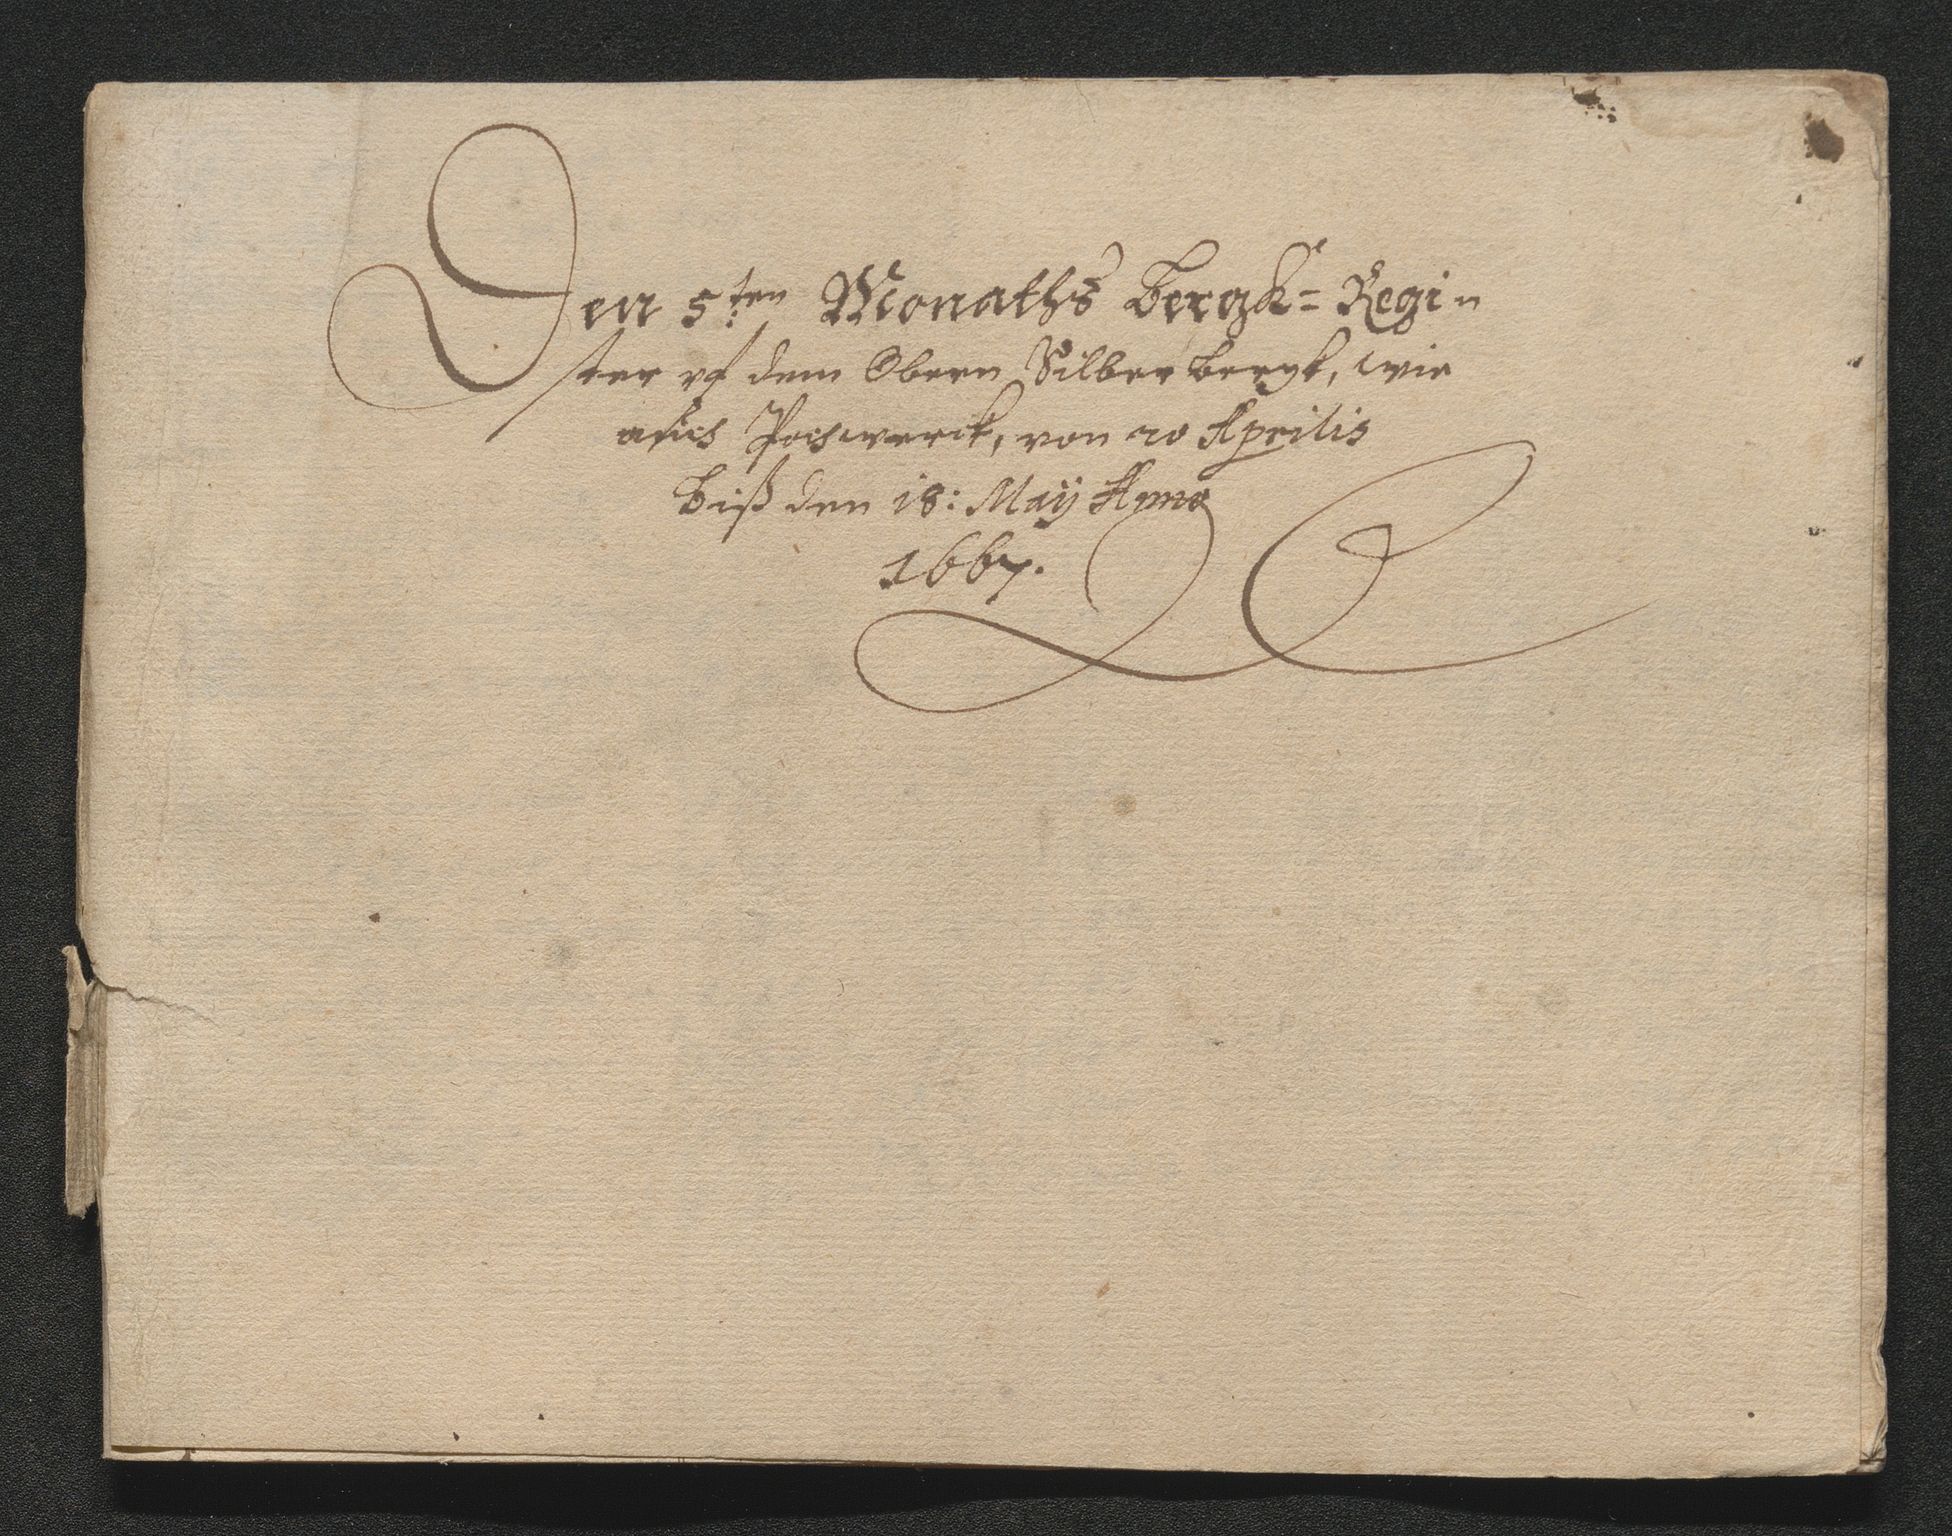 Den 5ten Monaths Bergk= Regi=
ster uf dem Obern Silberbergk, wie
auch Pochwerck, von 20 Aprilis
biß den 18: Maÿ Anno
1667.